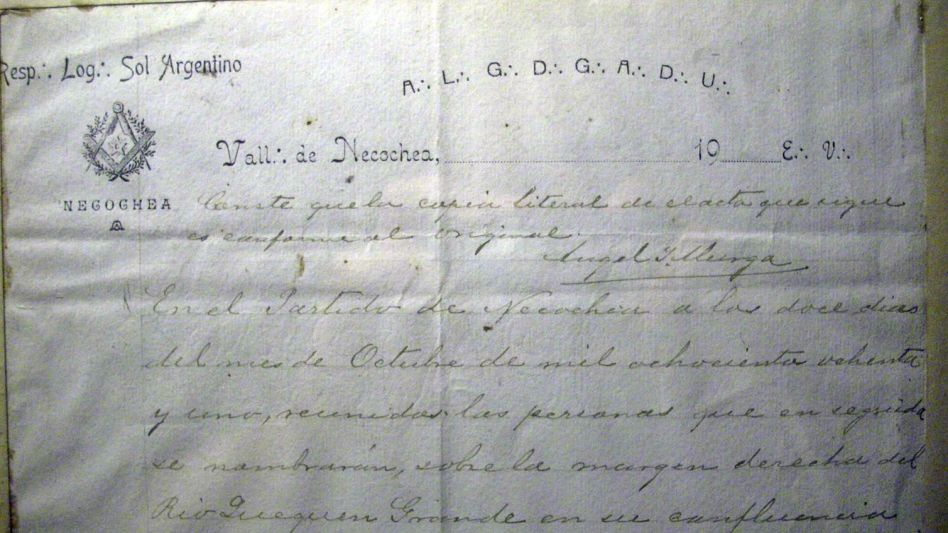 Resp∴ Log∴ Sol Argentino
A∴ L∴ G∴ D∴ G∴ A∴ D∴ U∴
Vall∴ de Necochea, 19 E∴ V∴
NECOCHEA
Conste que la copia literal de el acta que sigue
es conforme al original.
Angel I. Murga
En el Partido de Necochea a los doce dias
del mes de Octubre de mil ochocientos ochenta
y uno, reunidas las personas que en seguida
se nombrarán, sobre la margen derecha del
Rio Quequen Grande en su confluencia